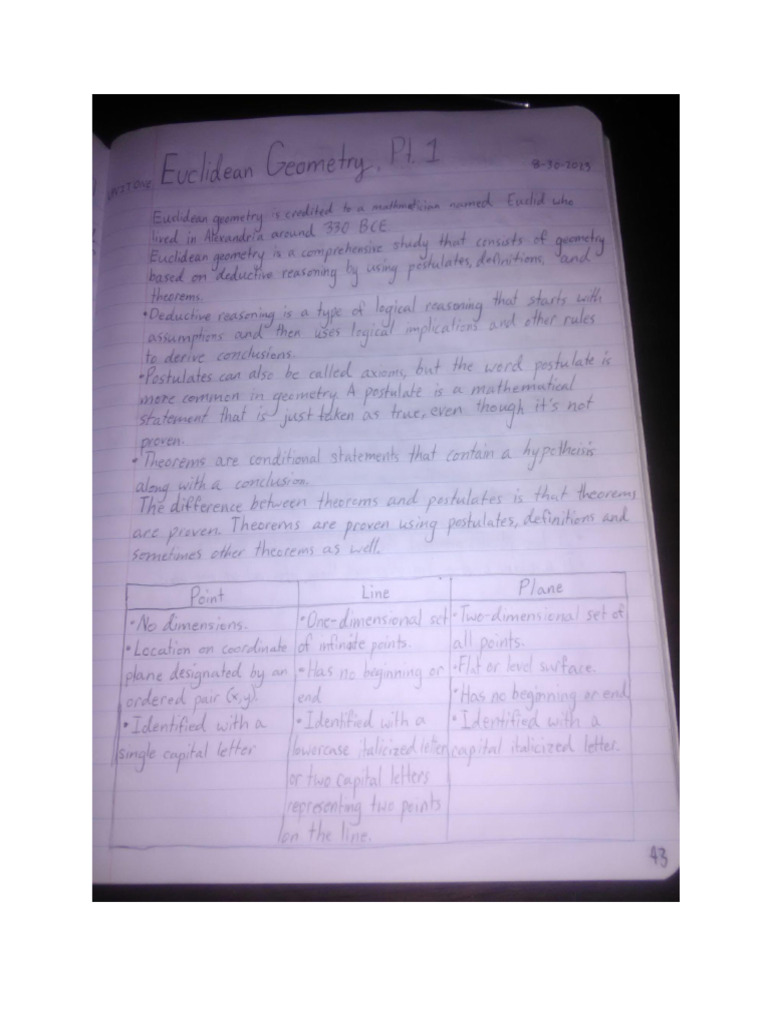 UNIT ONE Euclidean Geometry, Pt. 1 8-30-2023
Euclidean geometry is credited to a mathematician named Euclid who
lived in Alexandria around 330 BCE.
Euclidean geometry is a comprehensive study that consists of geometry
based on deductive reasoning by using postulates, definitions, and
theorems.
•Deductive reasoning is a type of logical reasoning that starts with
assumptions and then uses logical implications and other rules
to derive conclusions.
•Postulates can also be called axioms, but the word postulate is
more common in geometry. A postulate is a mathematical
statement that is just taken as true, even though it's not
proven.
•Theorems are conditional statements that contain a hypothesis
along with a conclusion.
The difference between theorems and postulates is that theorems
are proven. Theorems are proven using postulates, definitions and
sometimes other theorems as well.
Point
•No dimensions.
•Location on coordinate
plane designated by an
ordered pair (x,y).
•Identified with a
single capital letter
Line
•One-dimensional set
of infinite points.
•Has no beginning or
end
•Identified with a
lowercase italicized letter
or two capital letters
representing two points
on the line.
Plane
•Two-dimensional set of
all points.
•Flat or level surface.
•Has no beginning or end
•Identified with a
capital italicized letter.
43